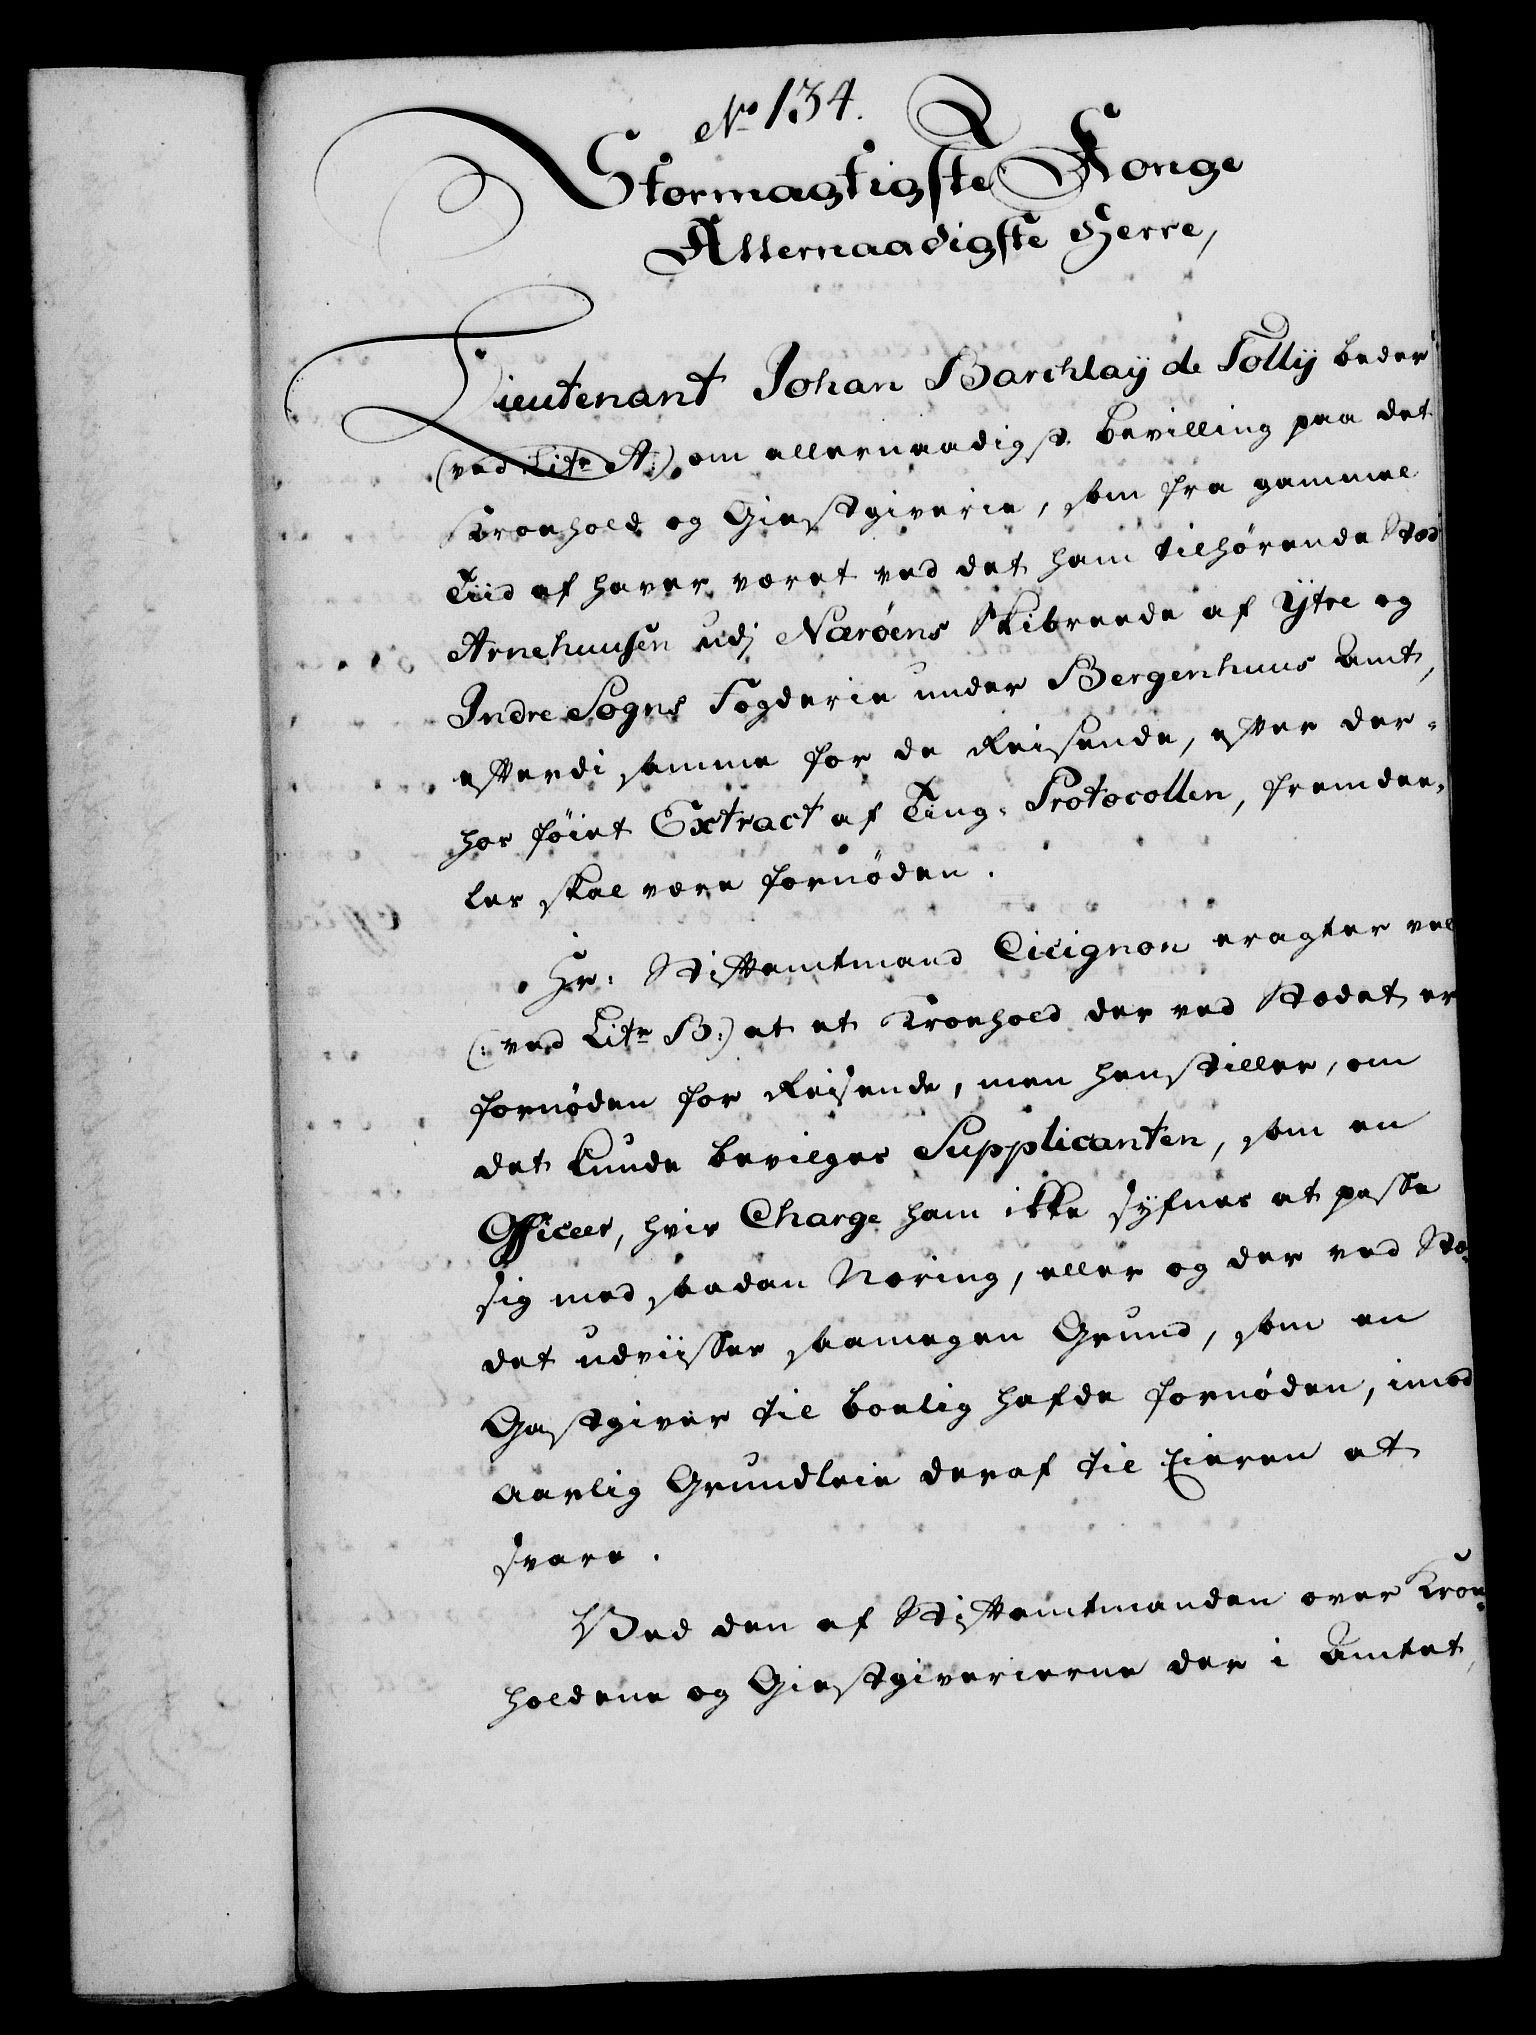 No 134.
Stormagtigste Konge
Allernaadigste Herre,
Lieutenant Johan Barchlaÿ de Tollÿ beder
(ved Litr A:) om allernaadigst Bevilling paa det
Kroehold og Giestgiverie, som fra gammel
Tiid af haver været ved det ham tilhørende Stæd
Arnehuusen udj Nærøens Skibreede af Ÿtre og
Indre Sogns Fogderie under Bergenhuus Amt,
efterdi samme for de Reisende, efter der-
hos føiet Extract af Ting-Protocollen, fremdee-
les skal være fornøden.
Hr: Stiftamtmand Cicignon eragter vel
(: ved Litr B:) at et Kroehold der ved Stædet er
fornøden for Reisende, men henstiller, om
det kunde bevilges Supplicanten, som en
Officeer, hvis Charge ham ikke sÿfnes at passe
sig med saadan Næring, eller og der ved Stæ-
det udviisses saamegen Grund, som en
Gastgiver til boelig hafde fornøden, imod
aarlig Grundleie deraf til Eieren at
svare.
Ved den af Stiftamtmanden over Kroe-
holdene og Giestgiverierne der i Amtet,